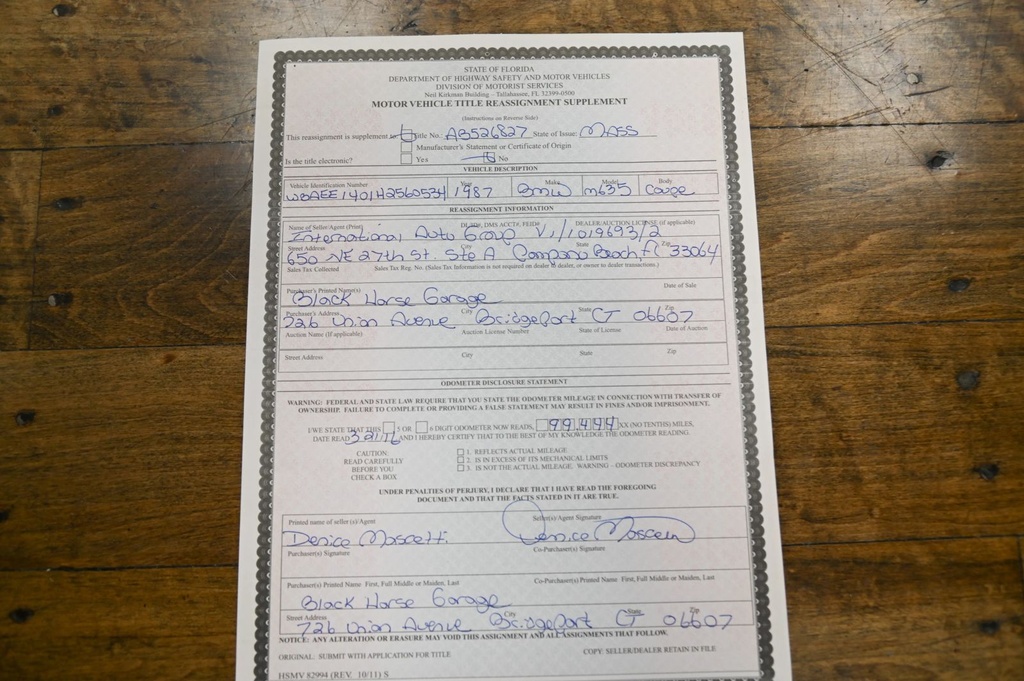 STATE OF FLORIDA
DEPARTMENT OF HIGHWAY SAFETY AND MOTOR VEHICLES
DIVISION OF MOTORIST SERVICES
Neil Kirkman Building – Tallahassee, FL 32399-0500
MOTOR VEHICLE TITLE REASSIGNMENT SUPPLEMENT
(Instructions on Reverse Side)
This reassignment is supplement to: Title No.: AB526827 State of Issue: MASS
Manufacturer's Statement or Certificate of Origin
Is the title electronic? Yes No
VEHICLE DESCRIPTION
Vehicle Identification Number Year Make Model Body
WBAEE1401H2560534 1987 Bmw m635 Coupe
REASSIGNMENT INFORMATION
Name of Seller/Agent (Print) DL/ID#, DMS ACCT#, FEID# DEALER/AUCTION LICENSE (if applicable)
International Auto Group VI/1019693/2
Street Address City State Zip
650 NE 27th St. Ste A Pompano Beach, Fl 33064
Sales Tax Collected Sales Tax Reg. No. (Sales Tax Information is not required on dealer to dealer, or owner to dealer transactions.)
Purchaser's Printed Name(s) Date of Sale
Black Horse Garage
Purchaser's Address City State Zip
726 Union Avenue Bridgeport CT 06607
Auction Name (If applicable) Auction License Number State of License Date of Auction
Street Address City State Zip
ODOMETER DISCLOSURE STATEMENT
WARNING: FEDERAL AND STATE LAW REQUIRE THAT YOU STATE THE ODOMETER MILEAGE IN CONNECTION WITH TRANSFER OF
OWNERSHIP. FAILURE TO COMPLETE OR PROVIDING A FALSE STATEMENT MAY RESULT IN FINES AND/OR IMPRISONMENT.
I/WE STATE THAT THIS 5 OR 6 DIGIT ODOMETER NOW READS, 99,494 XX (NO TENTHS) MILES,
DATE READ AND I HEREBY CERTIFY THAT TO THE BEST OF MY KNOWLEDGE THE ODOMETER READING.
CAUTION:
READ CAREFULLY
BEFORE YOU
CHECK A BOX
1. REFLECTS ACTUAL MILEAGE
2. IS IN EXCESS OF ITS MECHANICAL LIMITS
3. IS NOT THE ACTUAL MILEAGE. WARNING – ODOMETER DISCREPANCY
UNDER PENALTIES OF PERJURY, I DECLARE THAT I HAVE READ THE FOREGOING
DOCUMENT AND THAT THE FACTS STATED IN IT ARE TRUE.
Printed name of seller (s)/Agent Seller(s)/Agent Signature
Denice Moscetti Denice
Purchaser(s) Signature Co-Purchaser(s) Signature
Purchaser(s) Printed Name First, Full Middle or Maiden, Last Co-Purchaser(s) Printed Name First, Full Middle or Maiden, Last
Black Horse Garage
Street Address City State Zip
726 Union Avenue Bridgeport CT 06607
NOTICE: ANY ALTERATION OR ERASURE MAY VOID THIS ASSIGNMENT AND ALL ASSIGNMENTS THAT FOLLOW.
ORIGINAL: SUBMIT WITH APPLICATION FOR TITLE COPY: SELLER/DEALER RETAIN IN FILE
HSMV 82994 (REV. 10/11) S